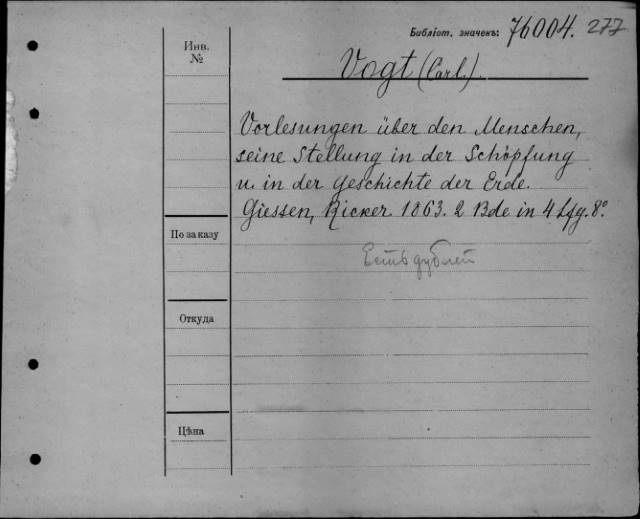 Библіот. значекъ: 76004. 277
Инв. №
Vogt (Carl.).
Vorlesungen über den Menschen,
seine Stellung in der Schöpfung
u. in der Geschichte der Erde.
Giessen, Ricker. 1863. 2 Bde in 4 Lfg. 8º.
По заказу
Есть дублет
Откуда
Цѣна